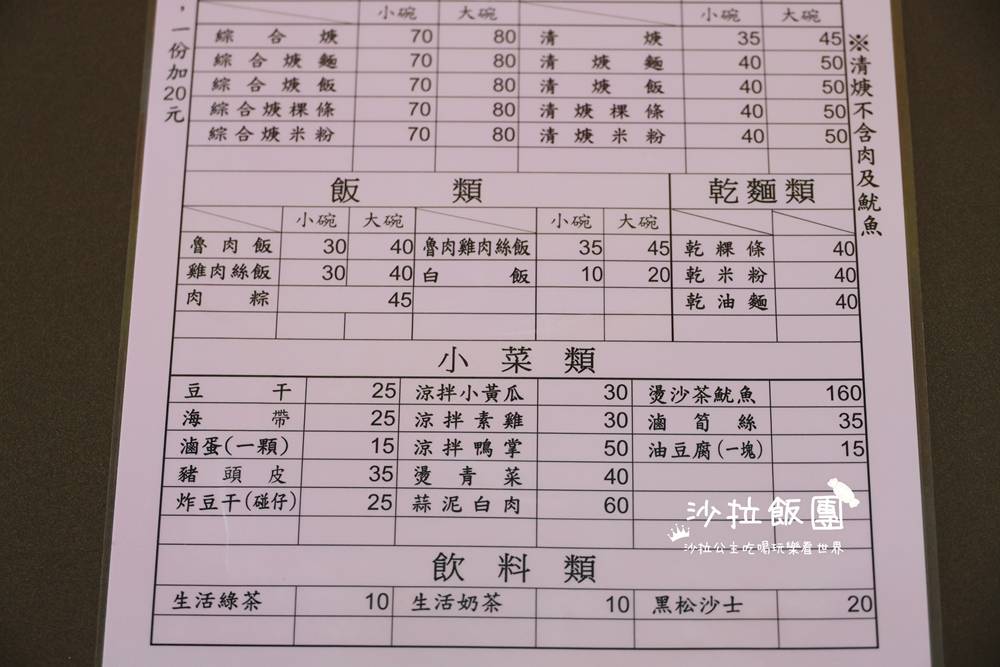 ，一份加20元
小碗 大碗 小碗 大碗
綜合焿 70 80 清焿 35 45
綜合焿麵 70 80 清焿麵 40 50
綜合焿飯 70 80 清焿飯 40 50
綜合焿粿條 70 80 清焿粿條 40 50
綜合焿米粉 70 80 清焿米粉 40 50
※清焿不含肉及魷魚
飯類 乾麵類
小碗 大碗 小碗 大碗
魯肉飯 30 40 魯肉雞肉絲飯 35 45 乾粿條 40
雞肉絲飯 30 40 白飯 10 20 乾米粉 40
肉粽 45 乾油麵 40
小菜類
豆干 25 涼拌小黃瓜 30 燙沙茶魷魚 160
海帶 25 涼拌素雞 30 滷筍絲 35
滷蛋(一顆) 15 涼拌鴨掌 50 油豆腐(一塊) 15
豬頭皮 35 燙青菜 40
炸豆干(碰仔) 25 蒜泥白肉 60
沙拉飯團
沙拉公主吃喝玩樂看世界
飲料類
生活綠茶 10 生活奶茶 10 黑松沙士 20